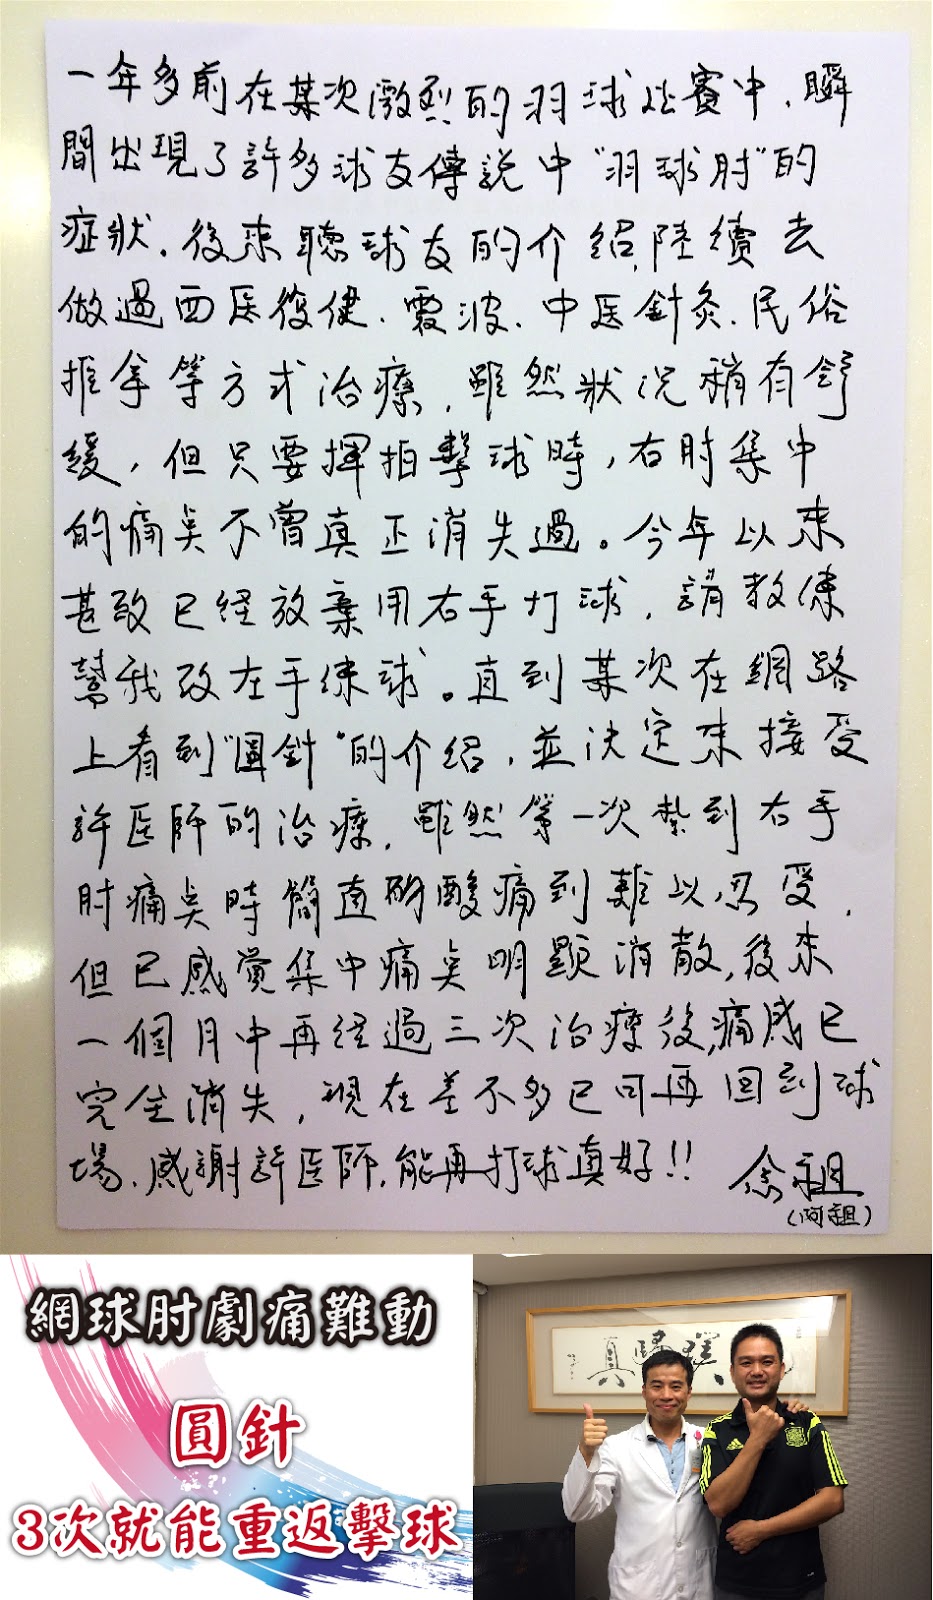 一年多前在某次激烈的羽球比賽中，瞬
間出現了許多球友傳說中"羽球肘"的
症狀。後來聽球友的介紹，陸續去
做過西医復健、震波、中医針灸、民俗
推拿等方式治療，雖然狀況稍有舒
緩，但只要揮拍擊球時，右肘集中
的痛点不曾真正消失過。今年以來
甚致已経放棄用右手打球，請教練
幫我改左手練球。直到某次在網路
上看到"圓針"的介紹，並決定來接受
許医師的治療，雖然第一次紮到右手
肘痛点時簡直痠痛到難以忍受，
但已感覚集中痛点明顯消散，後來
一個月中再経過三次治療後，痛感已
完全消失，現在差不多已可再回到球
場、感謝許医師，能再打球真好!!
余祖
(阿祖)
網球肘劇痛難動
圓針
3次就能重返擊球
真歸璞